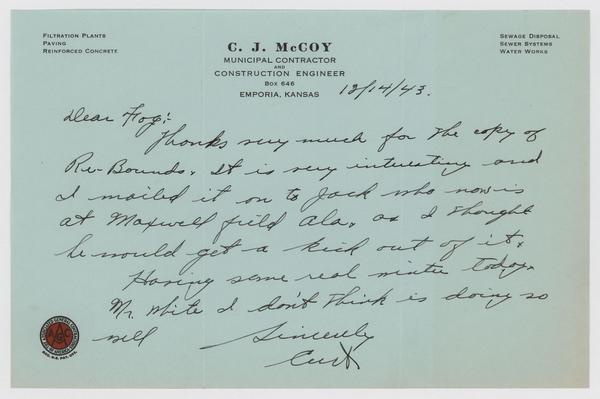 FILTRATION PLANTS
PAVING
REINFORCED CONCRETE
C. J. McCOY
MUNICIPAL CONTRACTOR
AND
CONSTRUCTION ENGINEER
BOX 646
EMPORIA, KANSAS
SEWAGE DISPOSAL
SEWER SYSTEMS
WATER WORKS
12/14/43.
Dear Fog:-
Thanks very much for the copy of
Re-Bounds. It is very interesting and
I mailed it on to Jack who now is
at Maxwell field Ala. as I thought
he would get a kick out of it.
Having some real winter today.
Mr. White I don't think is doing so
well
Sincerely
AGC